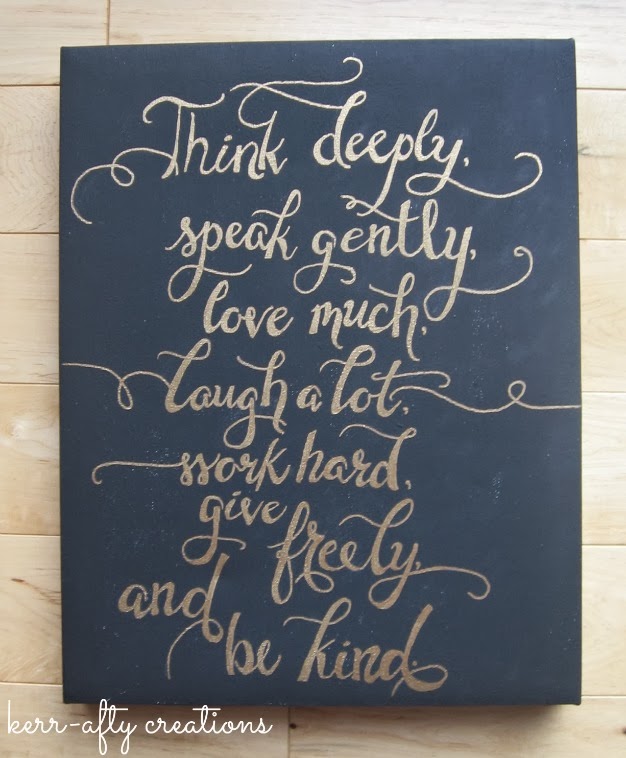 Think deeply,
speak gently,
love much,
laugh a lot,
work hard,
give freely,
and be kind.
kerr-afty creations